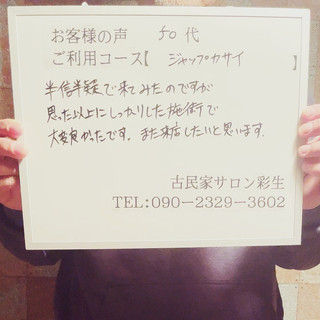 お客様の声 50代
ご利用コース【 ジャップカサイ 】
半信半疑で来てみたのですが
思った以上にしっかりした施術で
大変良かったです。また来店したいと思います。
古民家サロン彩生
TEL:090-2329-3602